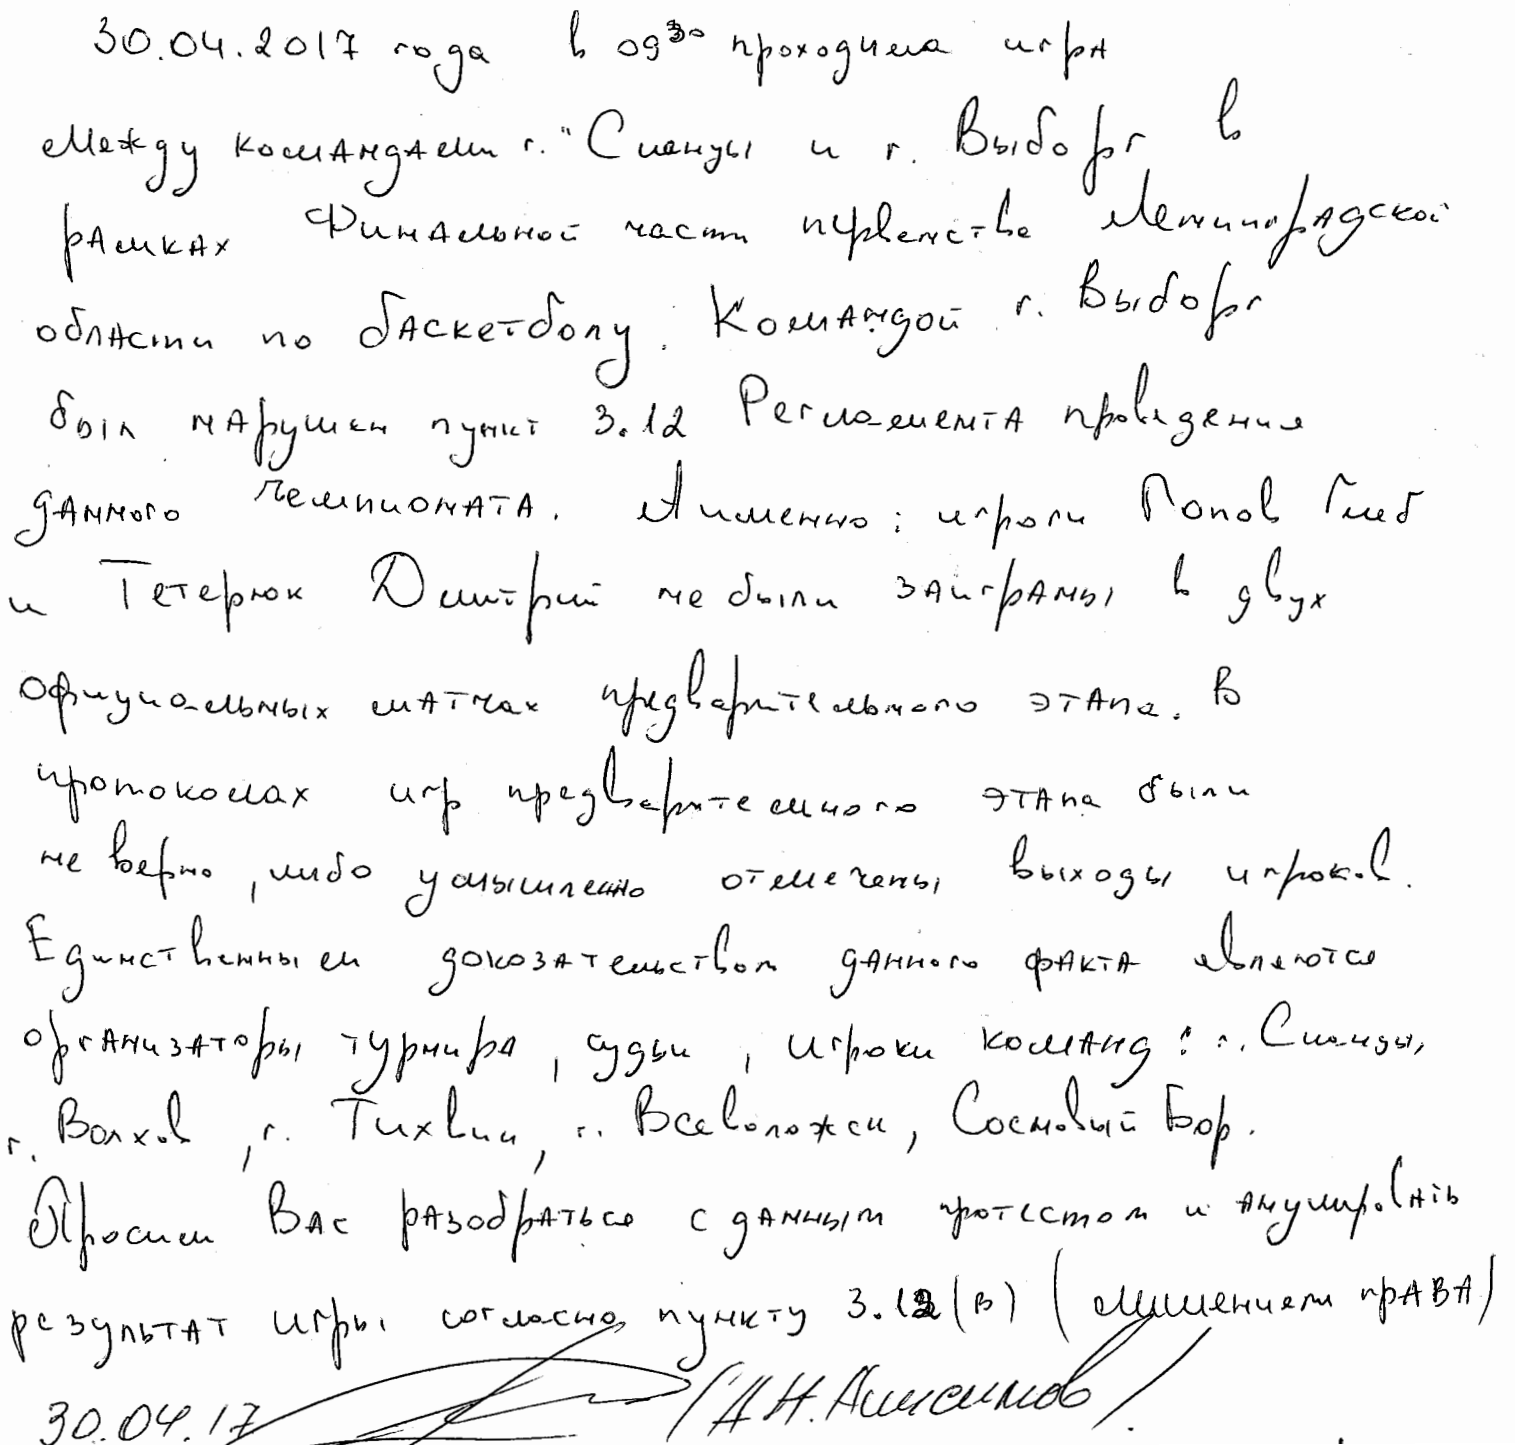 30.04.2017 года в 09³⁰ проходила игра
между командами г. "Сланцы и г. Выборг в
рамках Финальной части первенства Ленинградской
области по баскетболу. Командой г. Выборг
был нарушен пункт 3.12 Регламента проведения
данного чемпионата. А именно: игроки Попов Глеб
и Тетерюк Дмитрий не были заиграны в двух
официальных матчах предварительного этапа. В
протоколах игр предварительного этапа были
не верно, либо умышленно отмечены выходы игроков.
Единственным докозательством данного факта являются
организаторы турнира, судьи, игроки команд: г. Сланцы,
г. Волхов, г. Тихвин, г. Всеволожск, Сосновый Бор.
Просим Вас разобраться с данным протестом и анулировать
результат игры согласно пункту 3.12 (в) (лишением права)
30.04.17 / А.Н. Анисимов /